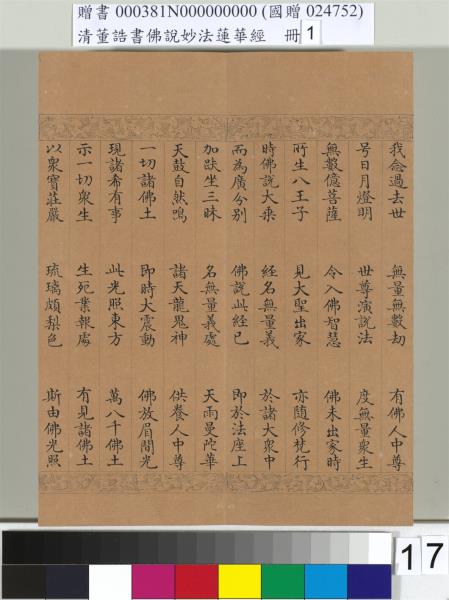 贈書 000381N000000000 (國贈 024752)
清董誥書佛說妙法蓮華經 冊 1
我念過去世 無量無數劫 有佛人中尊
号日月燈明 世尊演說法 度無量衆生
無數億菩薩 令入佛智慧 佛未出家時
所生八王子 見大聖出家 亦隨修梵行
時佛說大乘 經名無量義 於諸大衆中
而為廣分別 佛說此經已 即於法座上
加趺坐三昧 名無量義處 天雨曼陀華
天鼓自然鳴 諸天龍鬼神 供養人中尊
一切諸佛土 即時大震動 佛放眉間光
現諸希有事 此光照東方 萬八千佛土
示一切衆生 生死業報處 有見諸佛土
以衆寶莊嚴 琉璃頗梨色 斯由佛光照
17